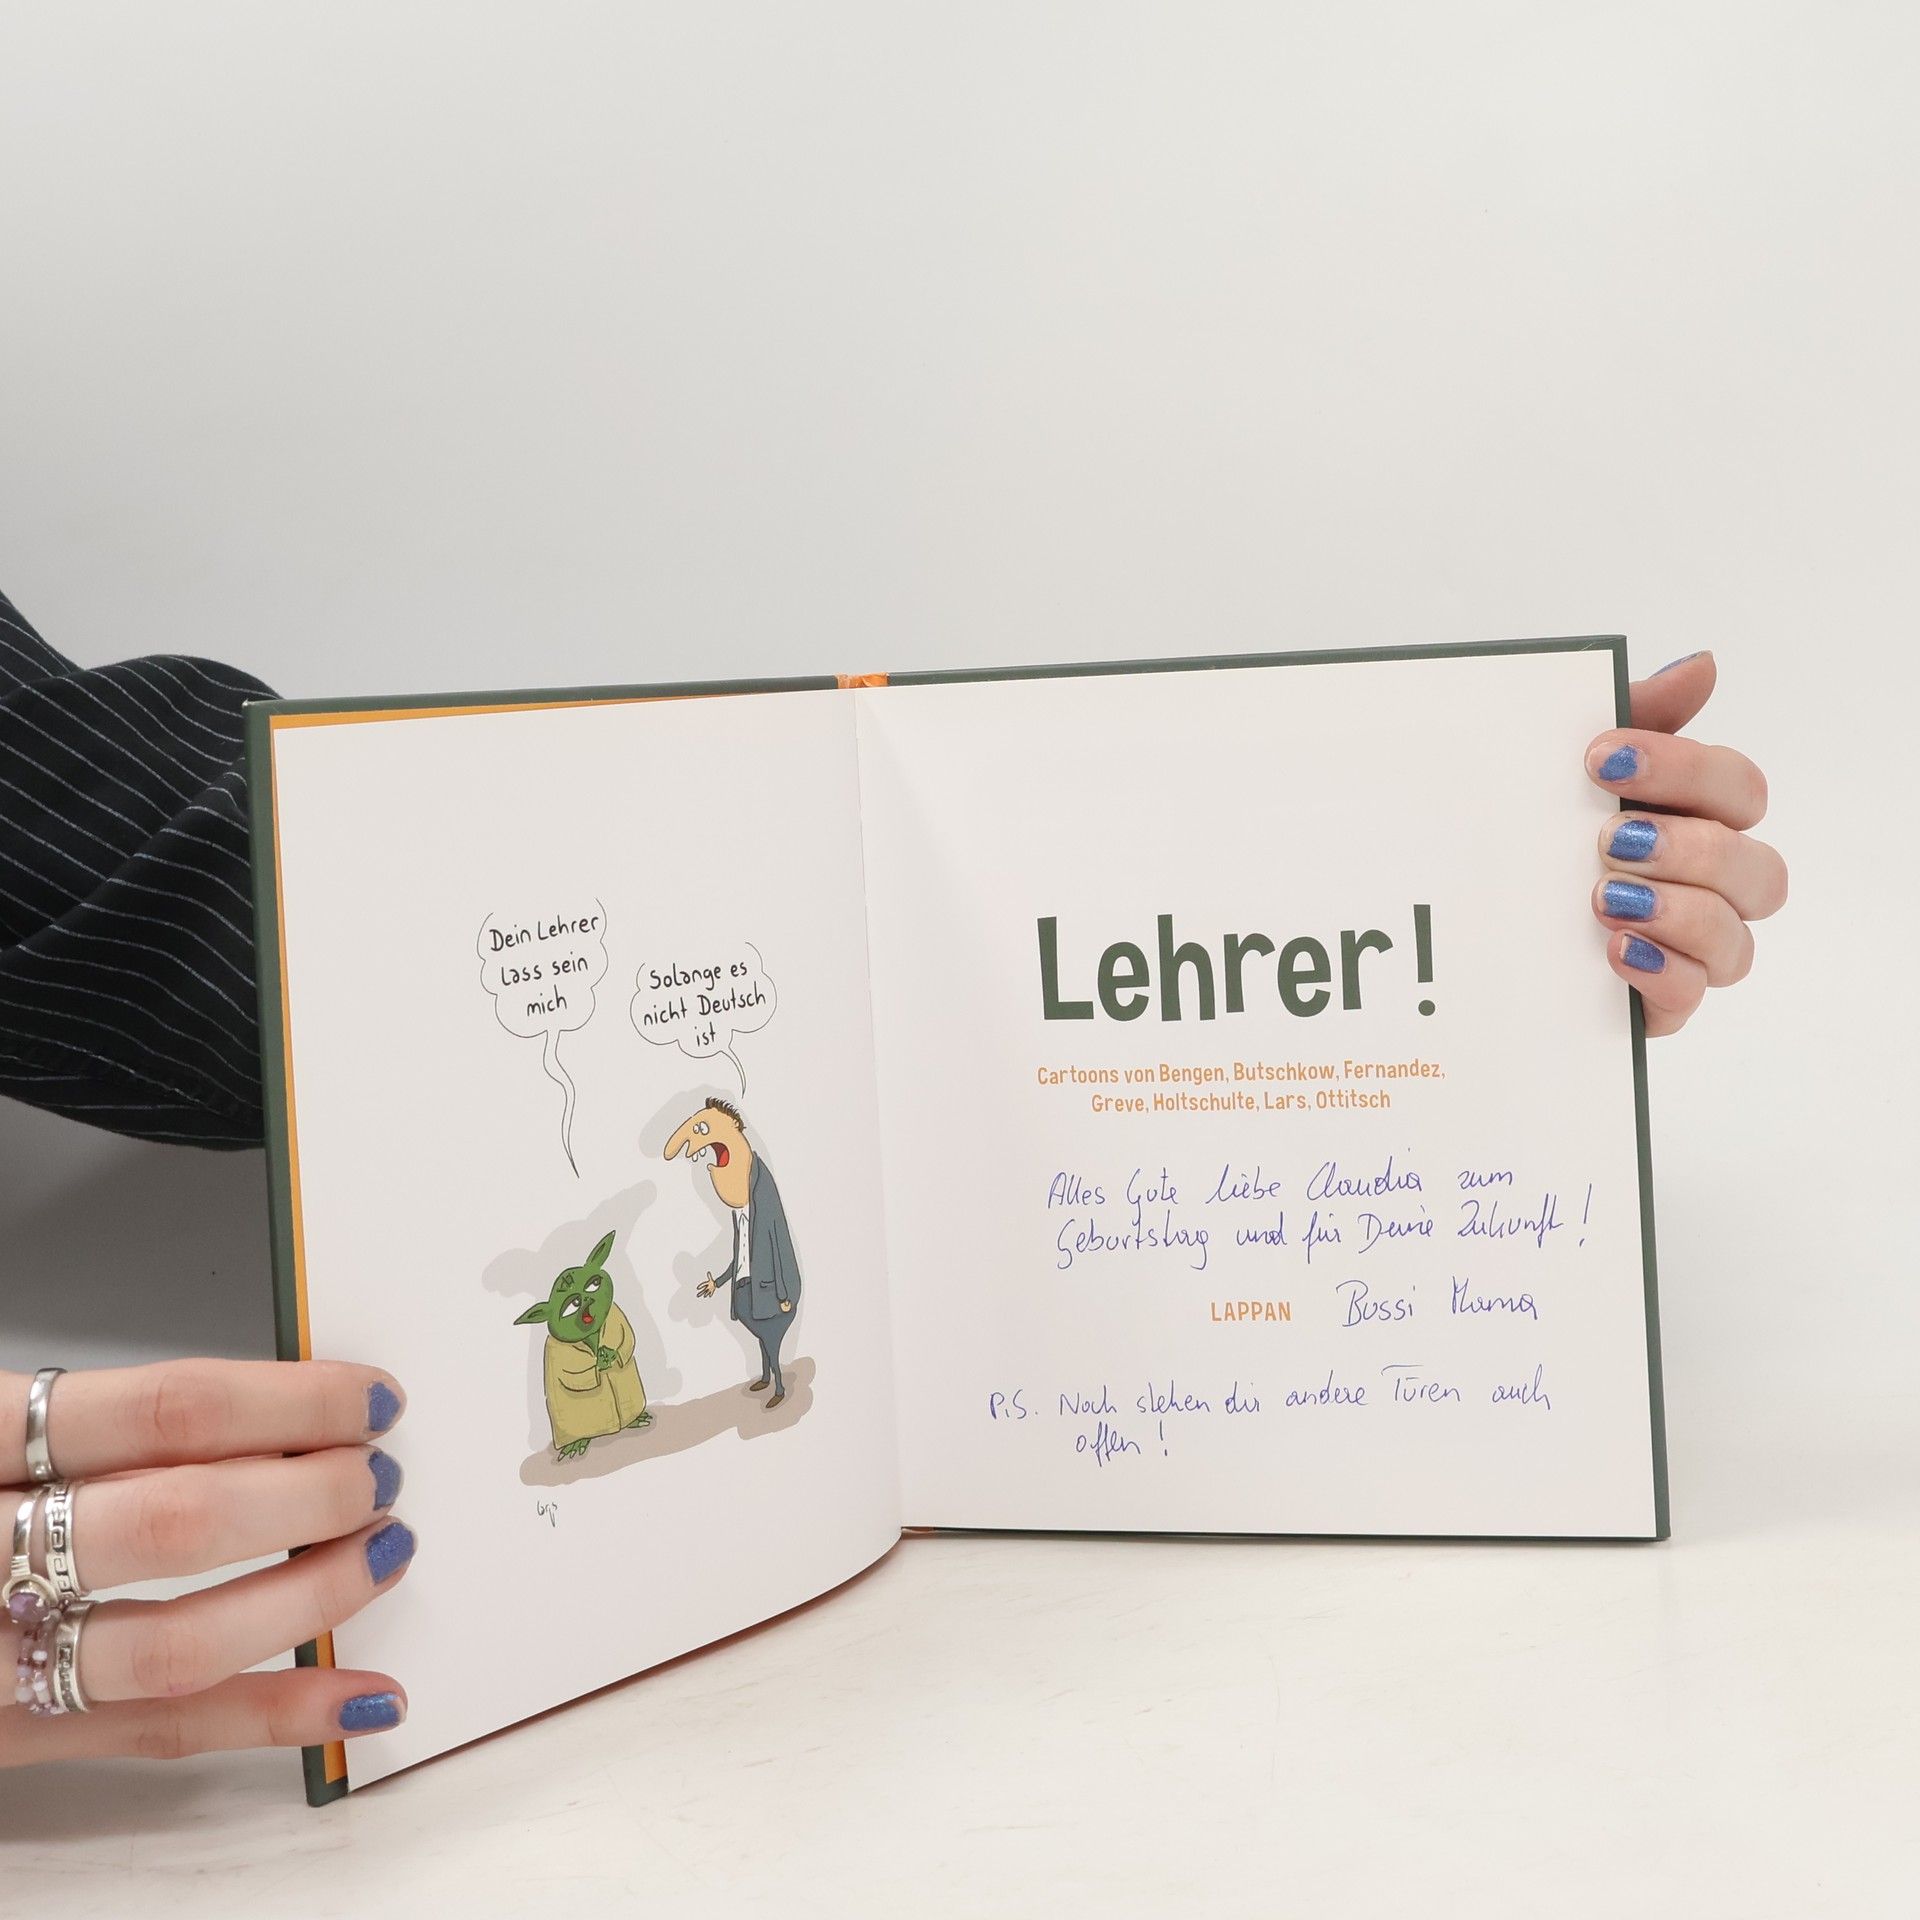 Dein Lehrer
lass sein
mich
Solange es
nicht Deutsch
ist
Lehrer!
Cartoons von Bengen, Butschkow, Fernandez,
Greve, Holtschulte, Lars, Ottitsch
Alles Gute liebe Claudia zum
Geburtstag und für Deine Zukunft!
LAPPAN
Bussi Mama
P.S. Noch stehen dir andere Türen auch
offen!